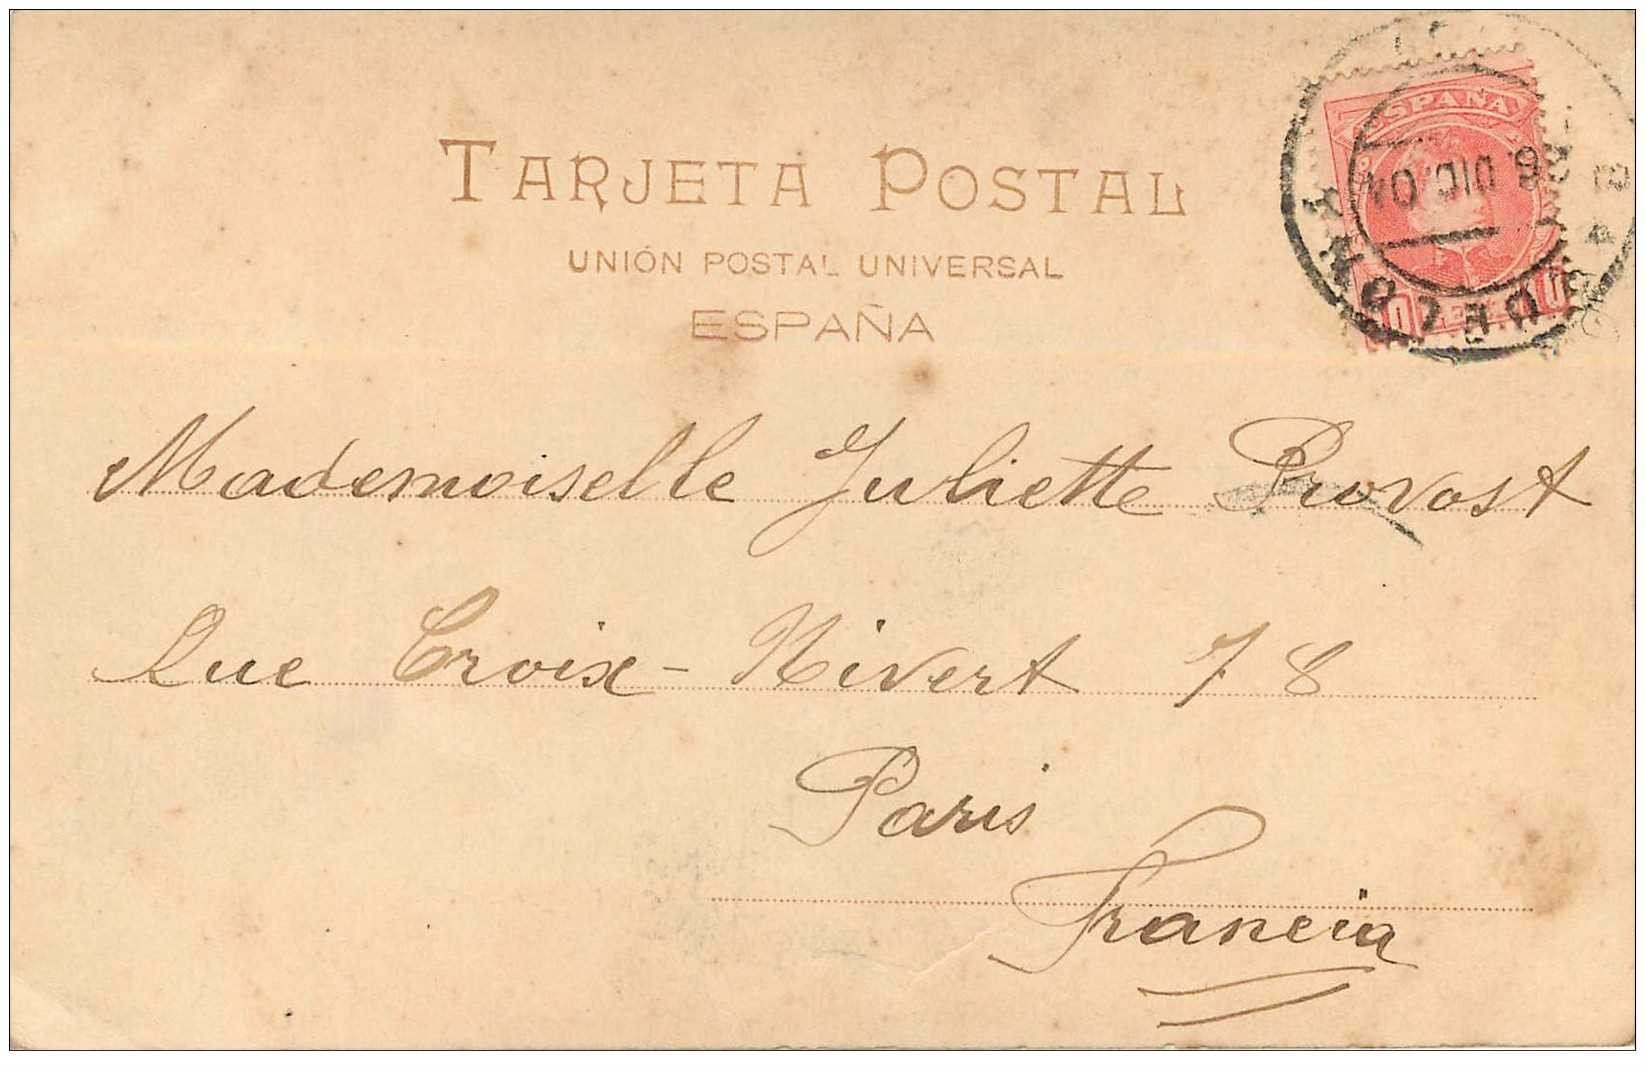 TARJETA POSTAL
UNIÓN POSTAL UNIVERSAL
ESPAÑA
ESPAÑA
6. DIC. 04
Mademoiselle Juliette Provost
Rue Croix-Nivert 78
Paris
Francia